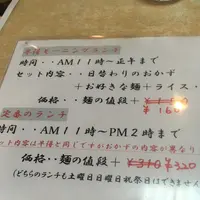 平佳モーニングランチ
時間・・AM11時～正午まで
セット内容・・日替わりのおかず
+お好きな麺+ライス・
価格・・麺の値段+
￥160
定番のランチ
時間・・AM11時～PM2時まで
セット内容は平佳と同じですがおかずの内容が異なり
価格・・麺の値段+￥310 ￥320
(どちらのランチも土曜日日曜日祝祭日はできません